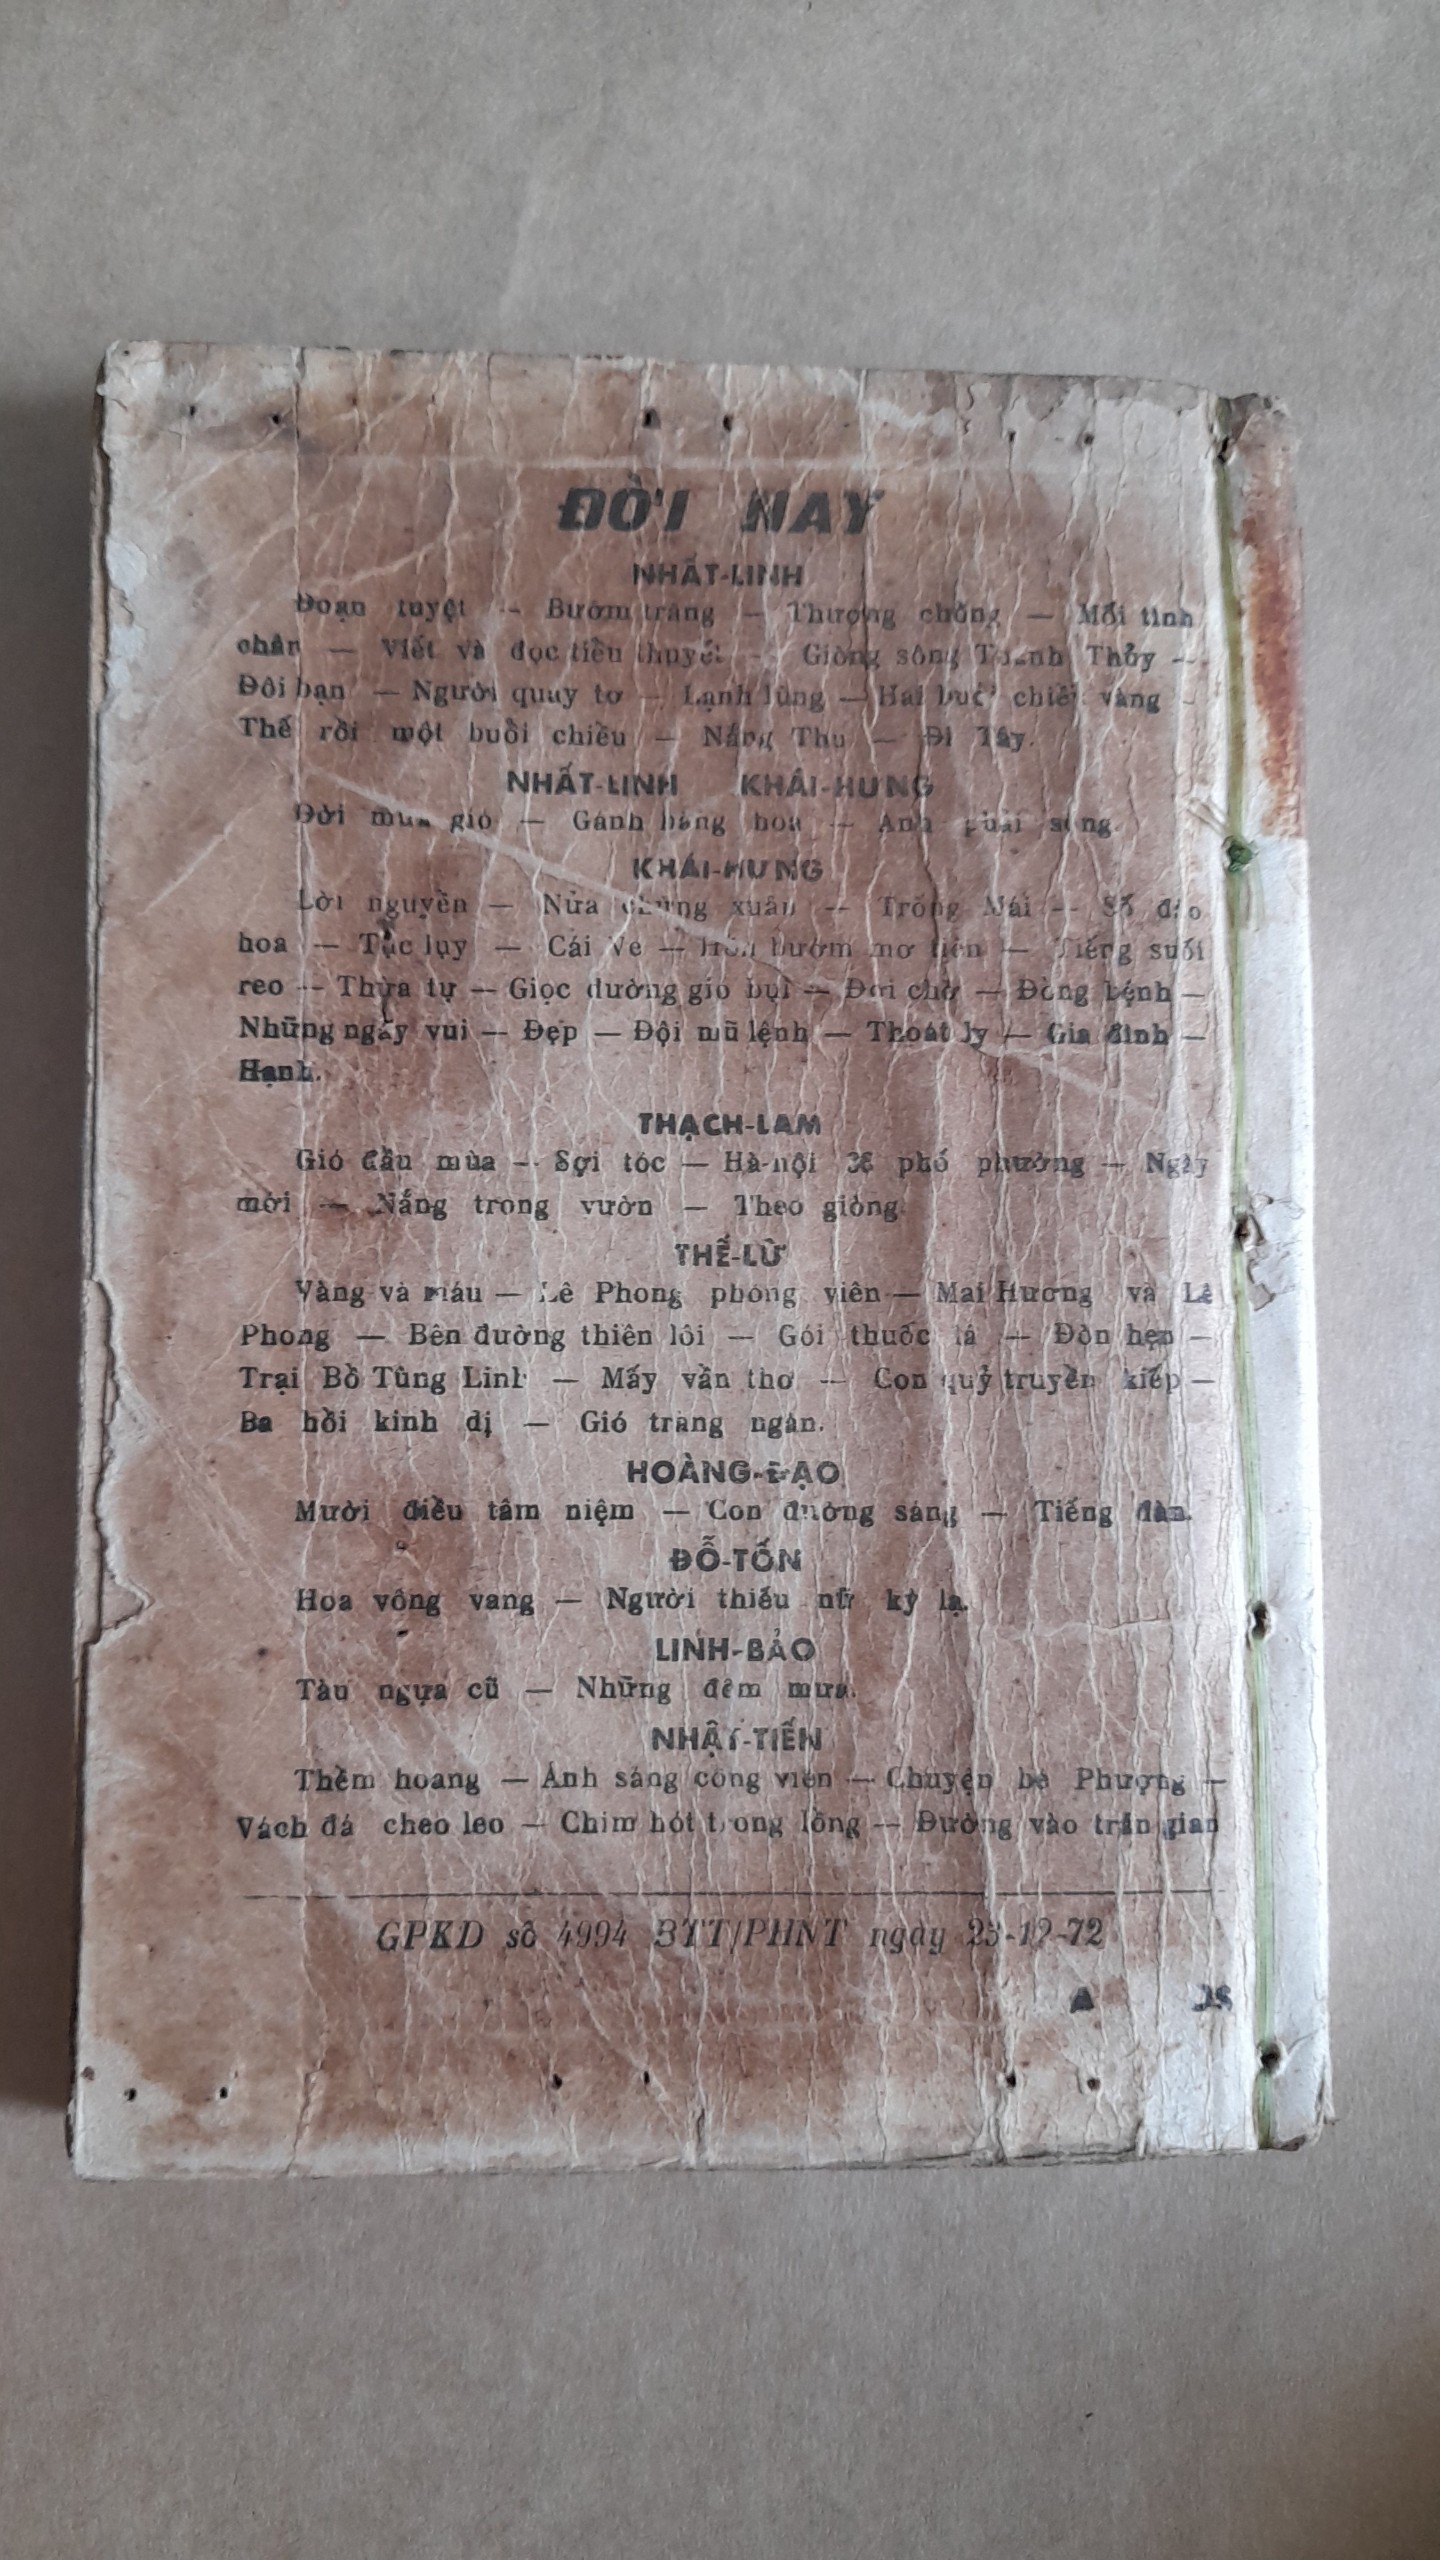 ĐỜI NAY
NHẤT-LINH
Đoạn tuyệt — Bướm trắng — Thương chồng — Mối tình
chân — Viết và đọc tiểu thuyết — Giòng sông Thanh Thủy —
Đôi bạn — Người quay tơ — Lạnh lùng — Hai buổi chiều vàng —
Thế rồi một buổi chiều — Nắng Thu — Đi Tây.
NHẤT-LINH KHÁI-HƯNG
Đời mưa gió — Gánh hàng hoa — Anh phải sống.
KHÁI-HƯNG
Lời nguyền — Nửa chừng xuân — Trống Mái — Số đào
hoa — Tục lụy — Cái Ve — Hồn bướm mơ tiên — Tiếng suối
reo — Thừa tự — Giọc đường gió bụi — Đợi chờ — Đồng bệnh —
Những ngày vui — Đẹp — Đội mũ lệnh — Thoát ly — Gia đình —
Hạnh.
THẠCH-LAM
Gió đầu mùa — Sợi tóc — Hà-nội 36 phố phường — Ngày
mới — Nắng trong vườn — Theo giòng.
THẾ-LỮ
Vàng và máu — Lê Phong phóng viên — Mai Hương và Lê
Phong — Bên đường thiên lôi — Gói thuốc lá — Đòn hẹn —
Trại Bồ Tùng Linh — Mấy vần thơ — Con quỷ truyền kiếp —
Ba hồi kinh dị — Gió trăng ngàn.
HOÀNG-ĐẠO
Mười điều tâm niệm — Con đường sáng — Tiếng đàn.
ĐỖ-TỐN
Hoa vông vang — Người thiếu nữ kỳ lạ.
LINH-BẢO
Tàu ngựa cũ — Những đêm mưa.
NHẬT-TIẾN
Thềm hoang — Ánh sáng công viên — Chuyện bé Phượng —
Vách đá cheo leo — Chim hót trong lồng — Đường vào trần gian
GPKD số 4994 BTT/PHNT ngày 23-12-72